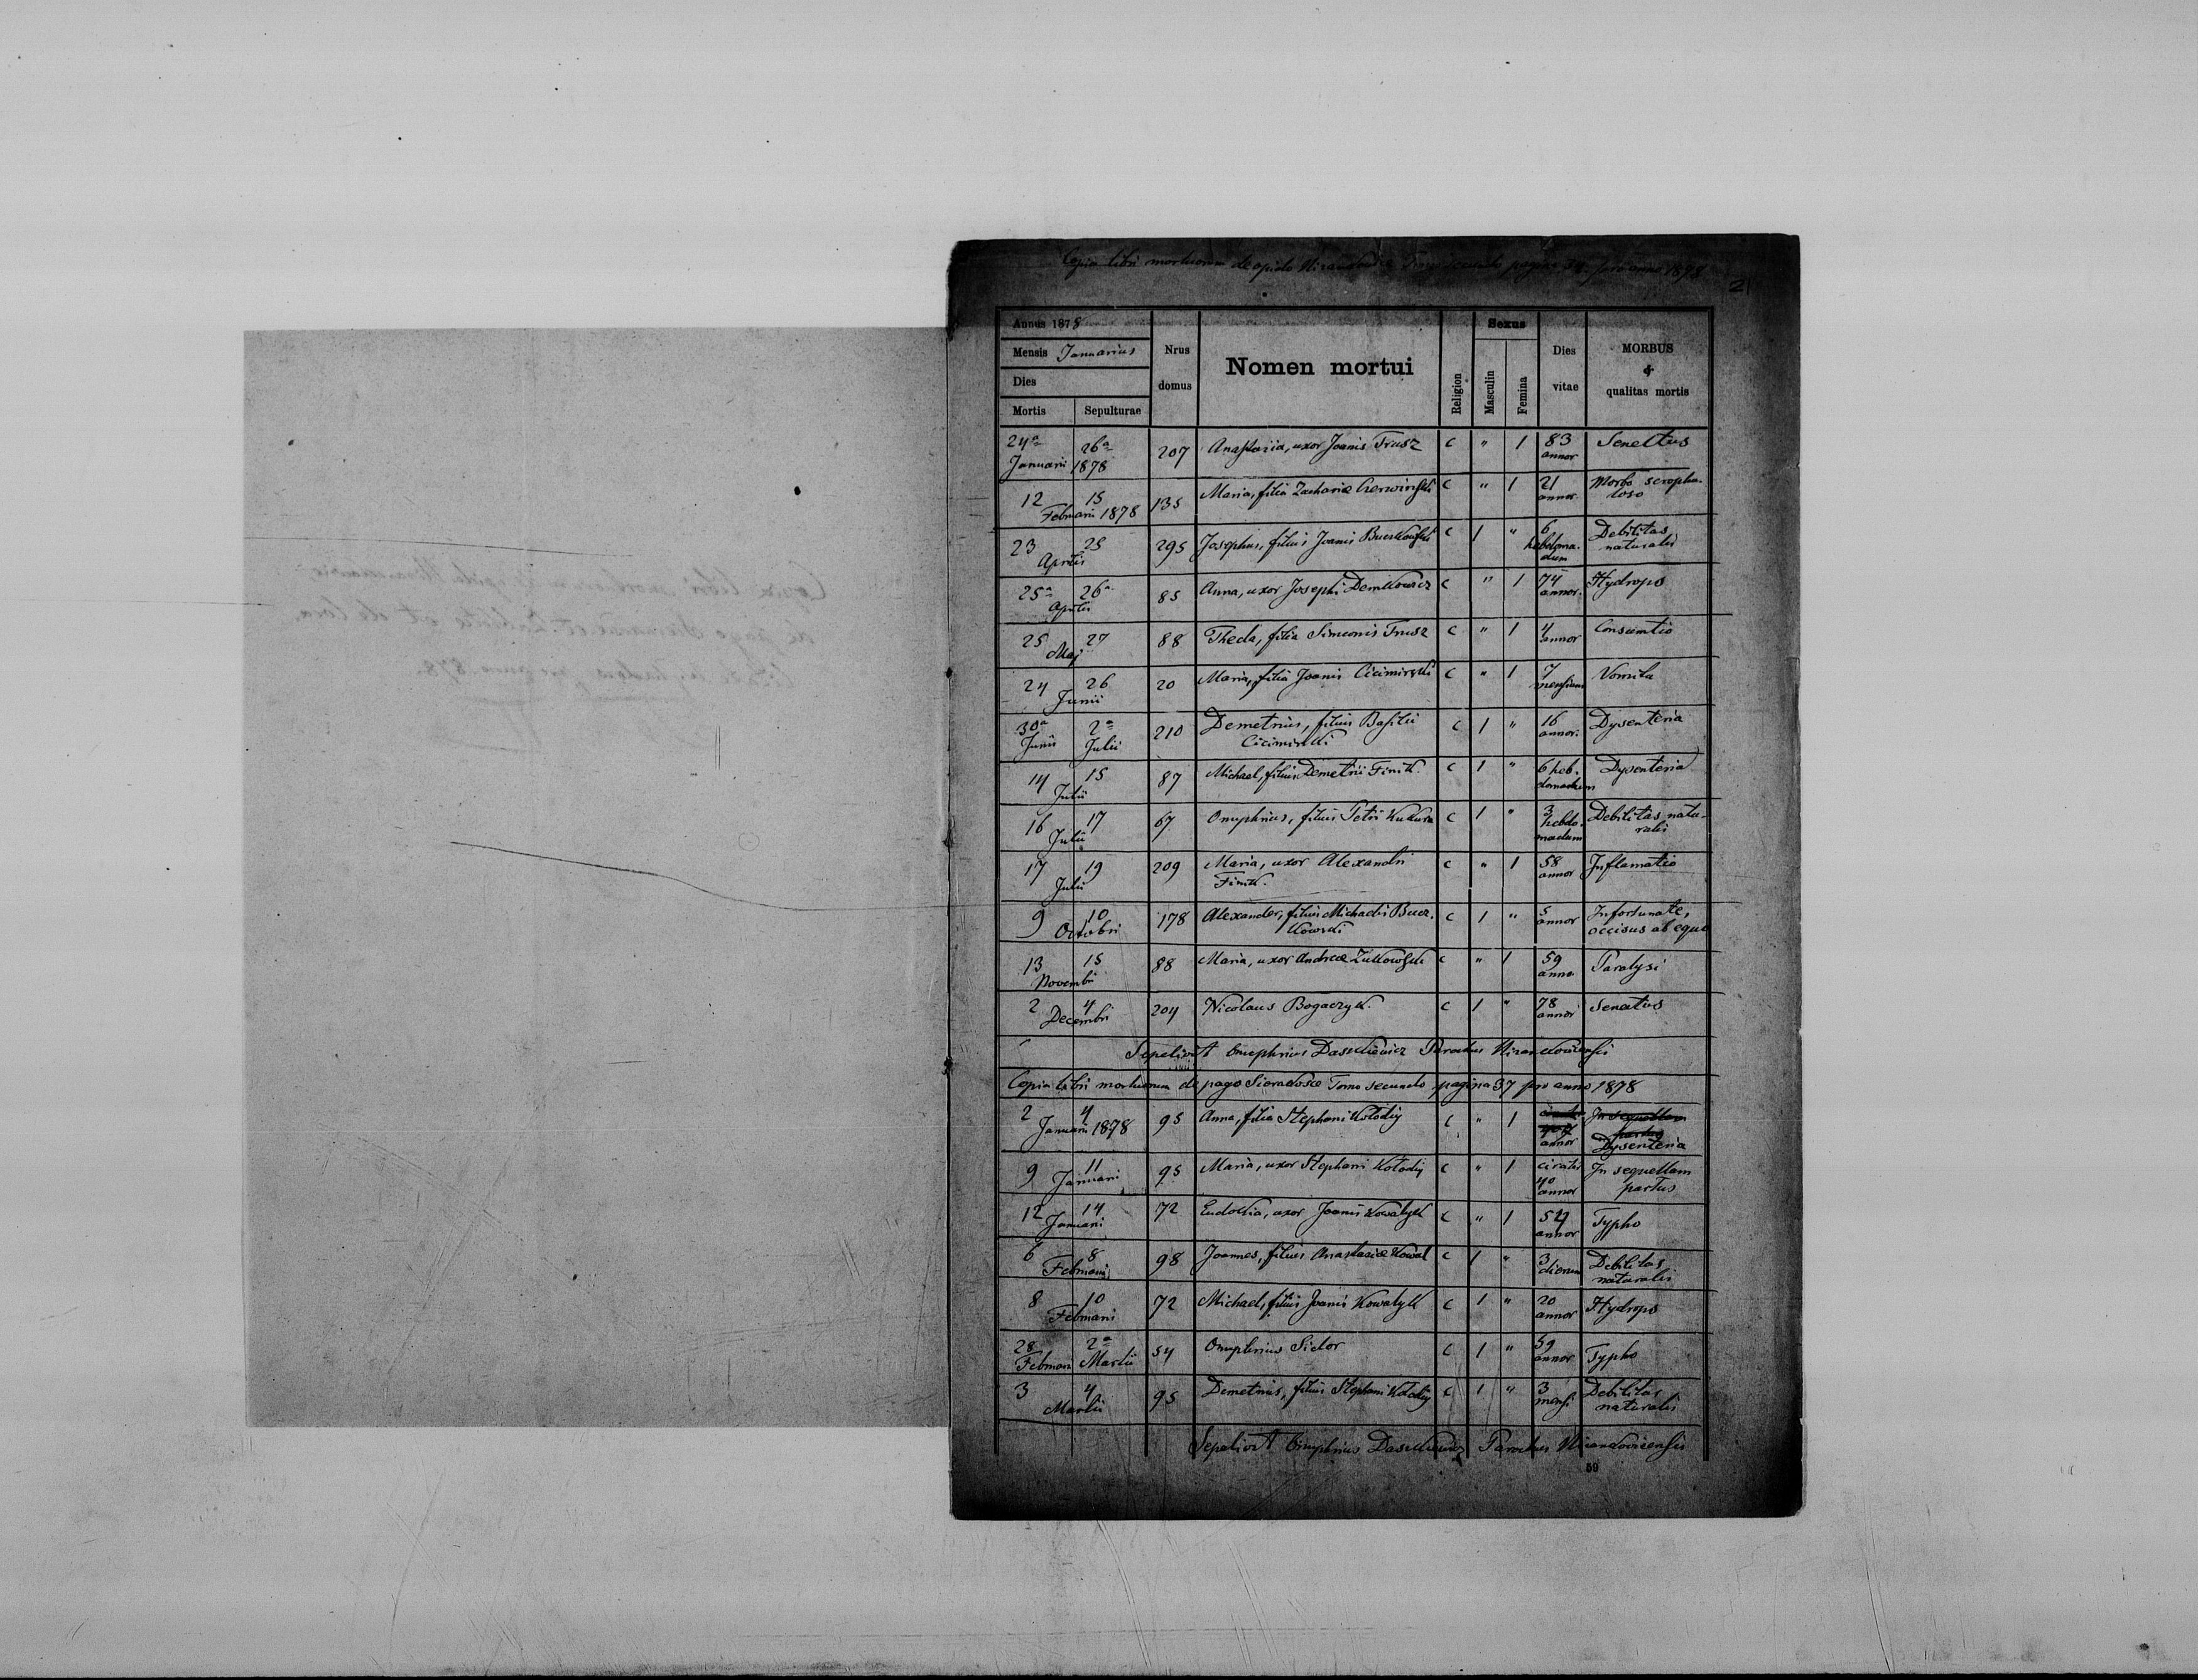 Copia libri mortuorum de opido pagina pro anno 1878
21
Annus 1878
Mensis Januarius
Dies
Mortis Sepulturae
Nrus domus
Nomen mortui
Religion
Sexus
Masculin Femina
Dies vitae
MORBUS & qualitas mortis
24a 26a Januarii 1878 207 Anastasia, uxor Joanis Trusz c " 1 83 annor Senectus
12 15 Februarii 1878 135 Maria, filia Zachariae Czerwiński c " 1 21 annor. Morbo scrophuloso
23 25 Aprilis 295 Josephus, filius Joanis Buczkowski c 1 " 6 hebdomadum Debilitas naturalis
25a 26a Aprilis 85 Anna, uxor Josephi Demkowicz c " 1 74 annor. Hydrops
25 27 Maj 88 Theda, filia Simeonis Trusz c " 1 4 annor Consumtio
24 26 Junii 20 Maria, filia Joanis Cicimirski c " 1 7 mensium Vomita
30a Junii 2a Julii 210 Demetrius, filius Basilii Cicimirski c 1 " 16 annor. Dysenteria
14 15 Julii 87 Michael, filius Demetrii Finik. c 1 " 6 hebdomadum Dysenteria
16 17 Julii 67 Onuphrius, filius Petri Kukura c 1 " 3 hebdomadum Debilitas naturalis
17 19 Julii 209 Maria, uxor Alexandri Finik. c " 1 58 annor Inflamatio
9 10 Octobri 178 Alexander, filius Michaelis Buczkowski c 1 " 5 annor Infortunate, occisus ab equo
13 15 Novembri 88 Maria, uxor Andreae Żulkowski c " 1 59 anno Paralysi
2 4 Decembri 204 Nicolaus Bogaczyk. c 1 " 78 annor Senectus
Sepelivit Onuphrius Daszkiewicz Parochus
Copia libri mortuorum de pago Tomo secundo pagina 37 pro anno 1878
2 4 Januarii 1878 95 Anna, filia Stephani Kołodij c " 1 annor In sequellam partus Dysenteria
9 11 Januarii 95 Maria, uxor Stephani Kołodij c " 1 40 annor In sequellam partus
12 14 Januarii 72 Eudokia, uxor Joanis Kowalyk c " 1 54 annor Typho
6 8 Februarii 98 Joannes, filius Anastasiae Kowal c 1 " 3 dierum Debilitas naturalis
8 10 Februarii 72 Michael, filius Joanis Kowalyk c 1 " 20 annor Hydrops
28 Februarii 2a Martii 54 Onuphrius Sidor c 1 " 59 annor Typho
3 4 Martii 95 Demetrius, filius Stephani Kołodij c 1 " 3 mensi Debilitas naturalis
Sepelivit Onuphrius Daszkiewicz Parochus
59